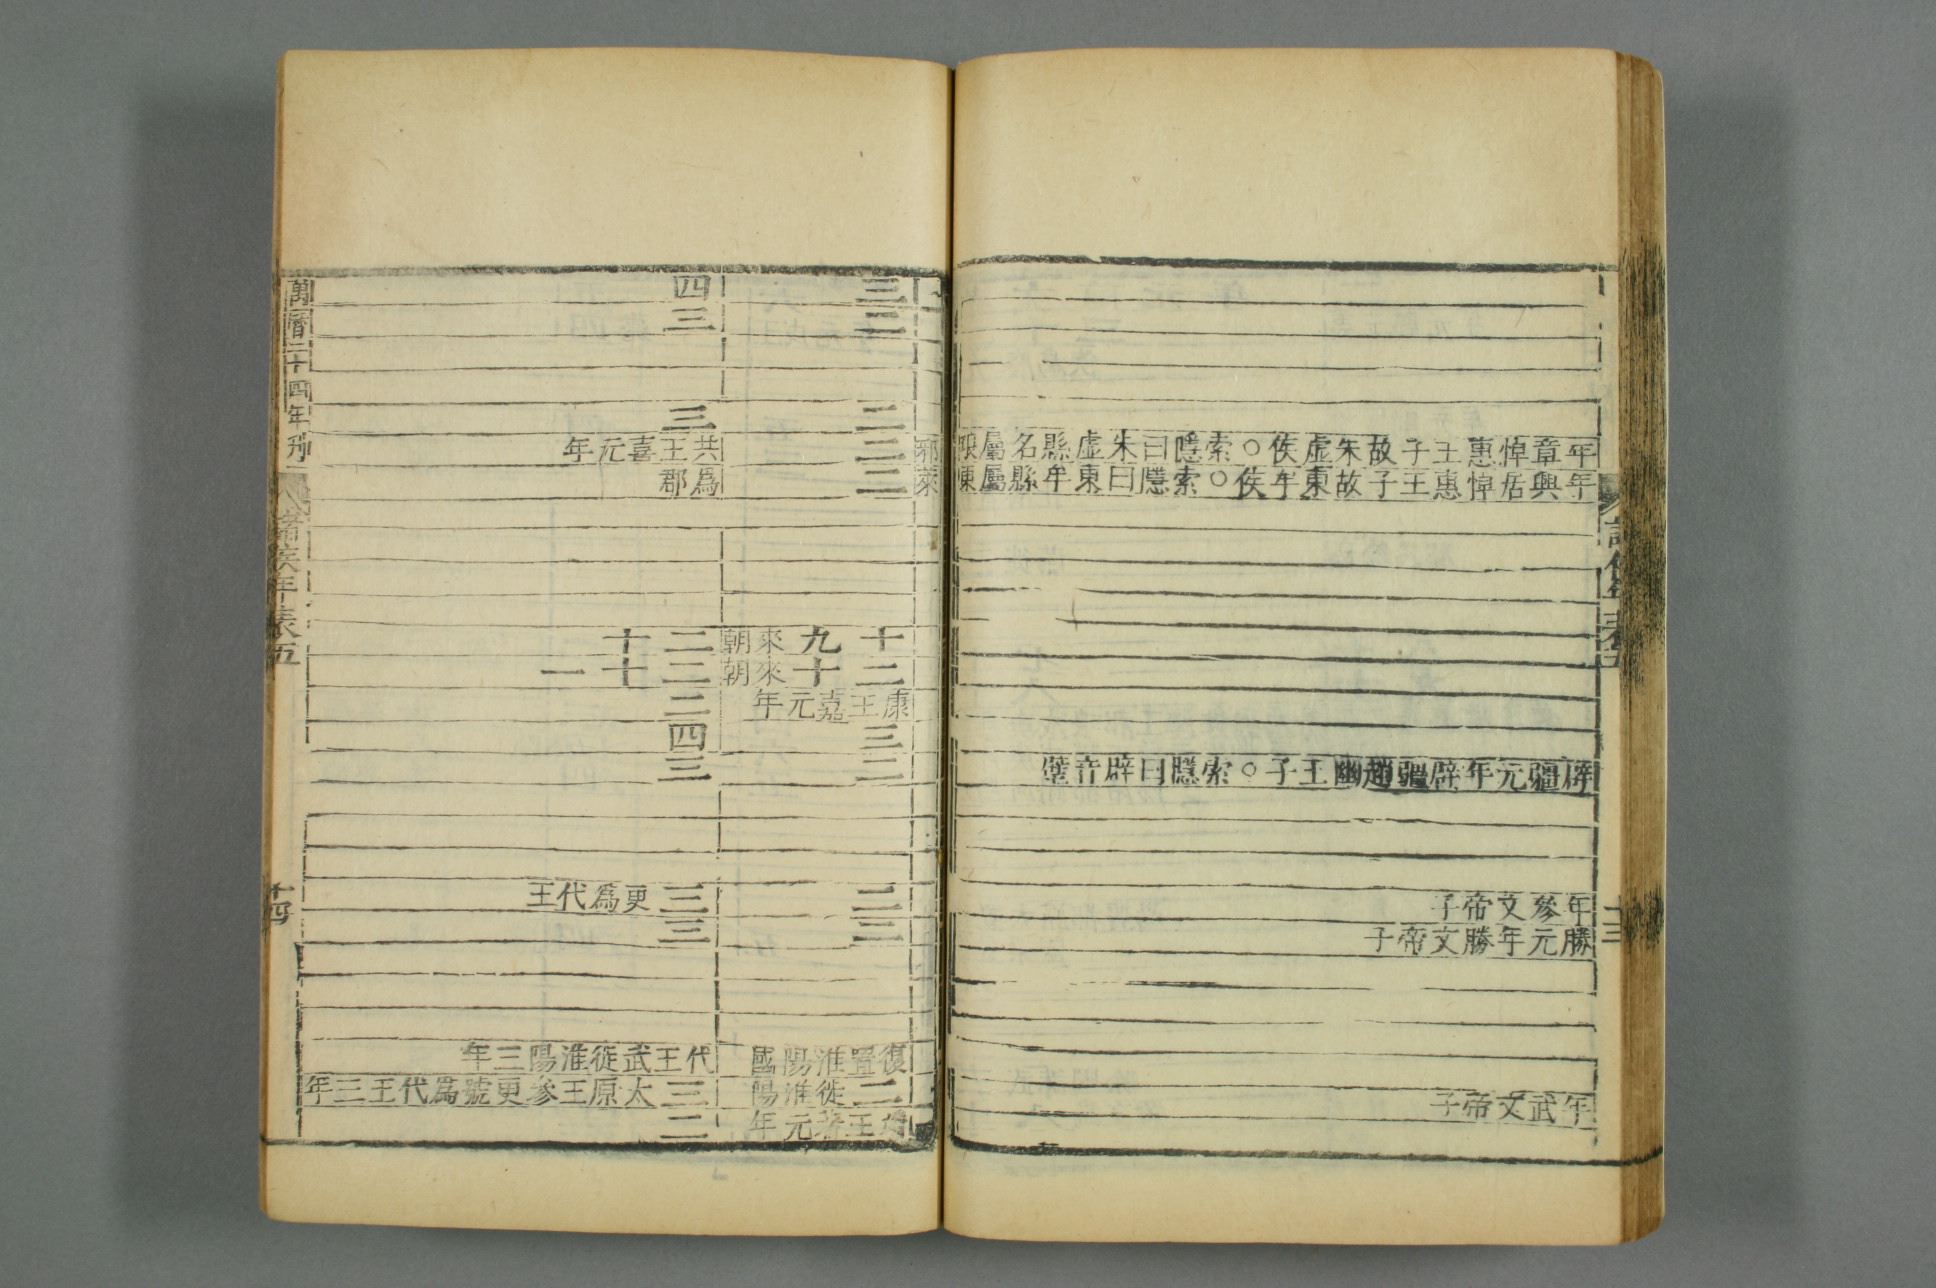 年章悼惠王子故朱虛侯○索隱曰朱虛縣名屬琅
年興居悼惠王子故東牟侯○索隱曰東牟縣屬東
辟疆元年辟疆趙幽王子○索隱曰辟音璧
年參文帝子
勝元年勝文帝子
年武文帝子
十三
邪
萊
三
二
二
三
二
十九來朝
二十來朝
康王嘉元年
三
二
二
二
復置淮陽國
二徙淮陽
王元年
四
三
三
共王喜元年
爲郡
二十
二十一
二
四
三
三更爲代王
三
代王武徙淮陽三年
三太原王參更號爲代王三年
二
萬曆二十四年刊
諸侯年表五
十四